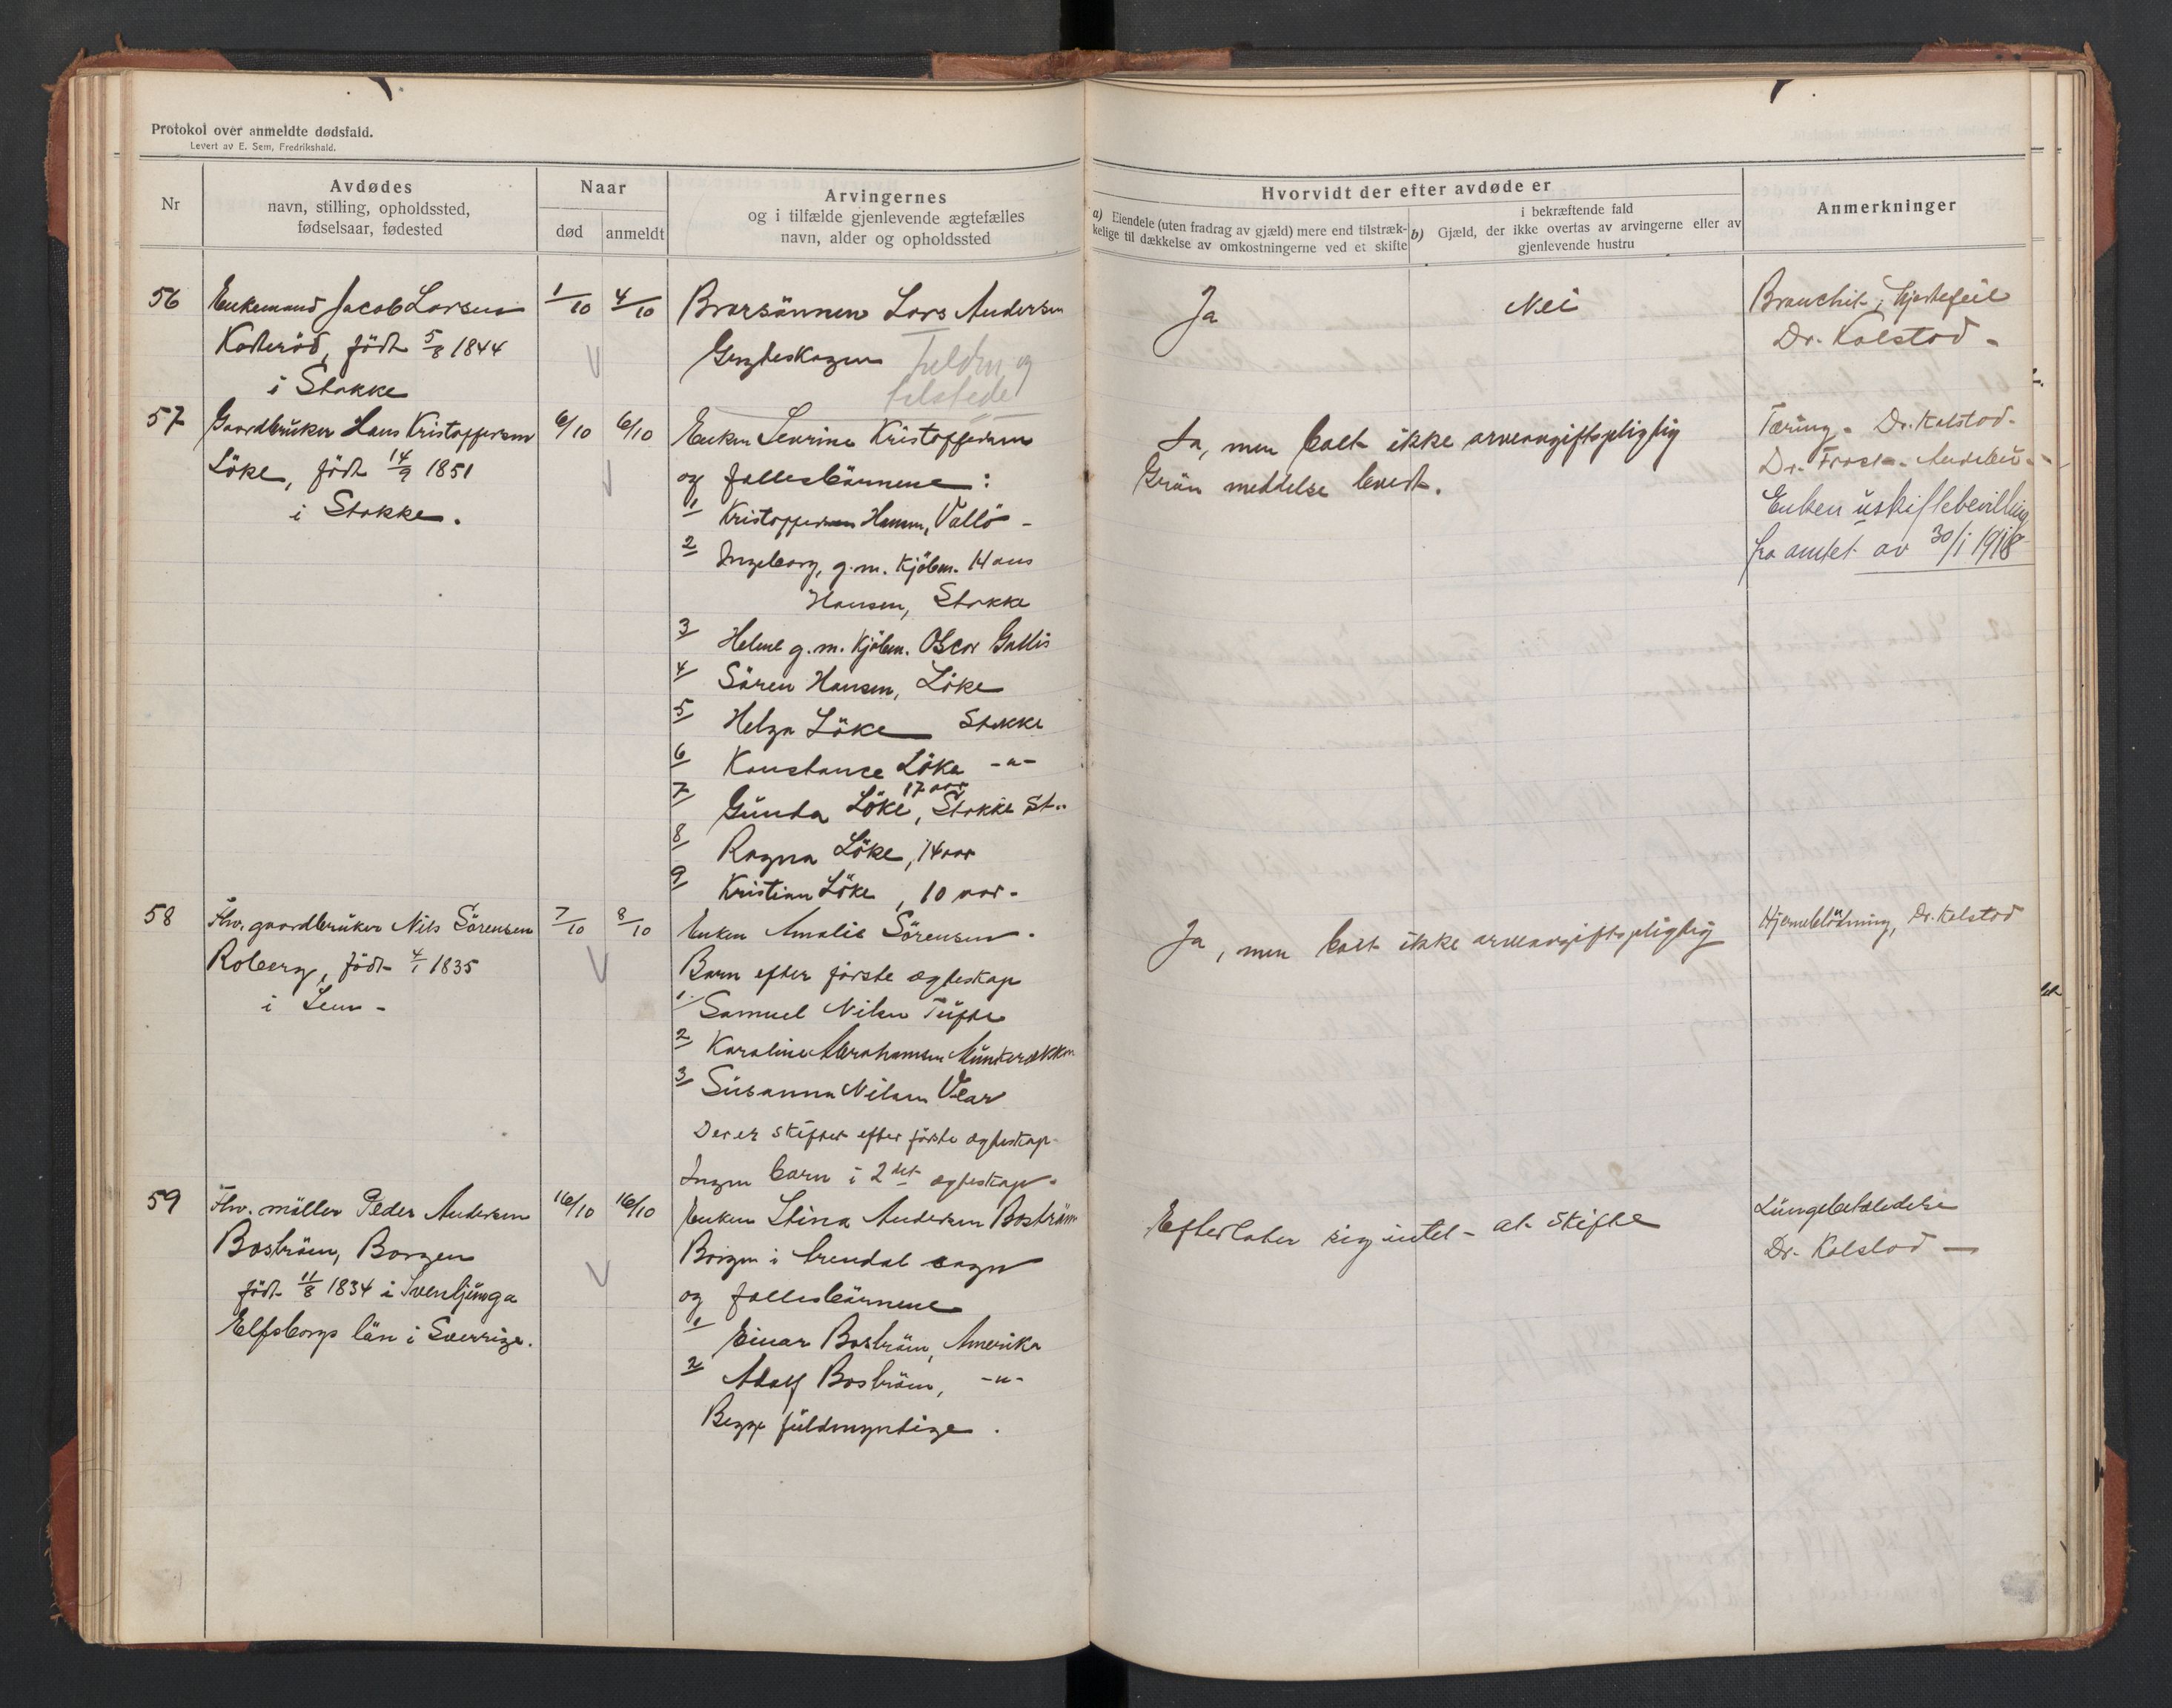 Protokol over anmeldte dødsfald.
Levert av E. Sem, Fredrikshald.
Nr
Avdødes
navn, stilling, opholdssted,
fødselsaar, fødested
Naar
død
anmeldt
Arvingernes
og i tilfælde gjenlevende ægtefælles
navn, alder og opholdssted
Hvorvidt der efter avdøde er
a) Eiendele (uten fradrag av gjæld) mere end tilstræk-
kelige til dækkelse av omkostningerne ved et skifte
i bekræftende fald
b) Gjæld, der ikke overtas av arvingerne eller av
gjenlevende hustru
Anmerkninger
56
Enkemand Jacob Larsen
Koderöd, födt 5/8 1844
i Stokke
1/10
4/10
Brorsönnen Lars Andersen
tilstede
Ja
Nei
Bronchit, hjertefeil
Dr. Kolstad -
57
Gaardbruker Hans Kristoffersen
Löke, födt 14/9 1851
i Stokke.
6/10
6/10
Enken Severine Kristoffersen
og fællesbörnene:
1/ Kristoffer Hansen, Vallö -
2/ Ingeborg, g.m. Kjöbm. Hans
Hansen, Stokke
3/ Helene g.m. Kjöbm. Oscar Gallis
4/ Sören Hansen, Löke
5/ Helga Löke Stokke
6/ Konstance Löke -"-
7/ Gunda Löke, 17 aar, Stokke St..
8/ Ragna Löke, 14 aar
9/ Kristian Löke, 10 aar.
Ja, men boet ikke arveavgiftspligtig
Grön meddelse levert.
Tæring. Dr. Kolstad.
Dr. Frost. Andebu.
Enken uskiftebevilling
fra amtet av 30/1 1918
58
Fhv. gaardbruker Nils Sörensen
Roberg, födt 4/1 1835
i Sem -
7/10
8/10
Enken Amalie Sörensen.
Barn efter förste ægteskap
1/ Samuel Nilsen Tufte
2/ Karoline Abrahamsen Munkerækken
3/ Susanna Nilsen Vear
Der er skiftet efter förste ægteskap.
Ingen barn i 2det ægteskap.
Ja, men boet ikke arveavgiftspligtig
Hjerneblödning, Dr. Kolstad
59
Fhv. möller Peder Andersen
Boström, Borgen
födt 11/8 1834 i Svenljunga
Elfsborgs län i Sverrige.
16/10
16/10
Enken Stina Andersen Boström
Borgen i Arendal sogn
og fællesbörnene
1/ Einar Boström, Amerika
2/ Adolf Boström, -"-
Begge fuldmyndige.
Efterlater sig intet at skifte
Lungebetændelse
Dr. Kolstad -